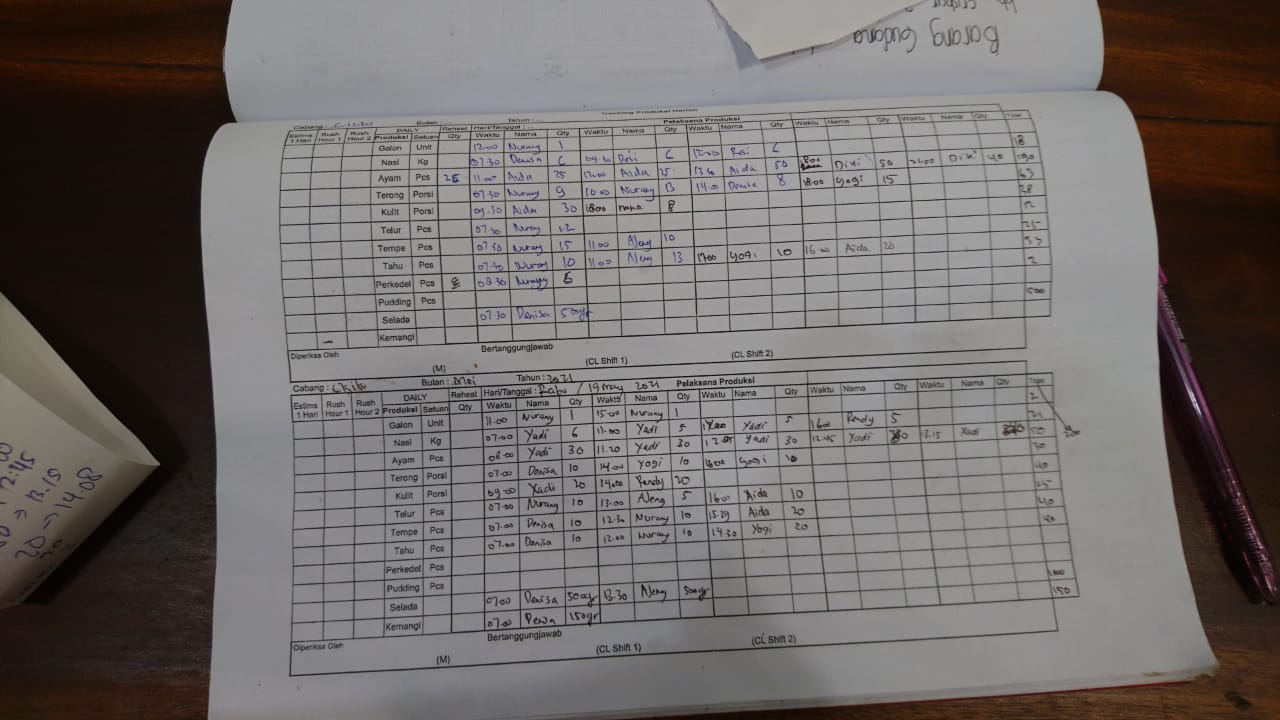 Barang Gudang
Tracking Produksi Harian
Cabang : Bulan : ... Tahun : ...
Pelaksana Produksi
Estims 1 Hari Rush Hour 1 Rush Hour 2 DAILY Reheat Hari/Tanggal : ...
Produksi Satuan Qty Waktu Nama Qty Waktu Nama Qty Waktu Nama Qty Waktu Nama Qty Waktu Nama Qty Total
Galon Unit 12.00 Nurany 1
Nasi Kg 07.30 Denisa 6 09.30 Resi 6 12.00 Resi 6 18
Ayam Pcs 25 11.00 Aida 25 12.00 Aida 25 Aida 50 Diki 50 21.00 Diki 40 190
Terong Porsi 07.30 Nurany 9 10.00 Nurany 13 14.00 Denisa 8 18.00 Yogi 15 63
Kulit Porsi 09.30 Aida 30 18.00 nana 8 38
Telur Pcs 07.30 Nurany 12 12
Tempe Pcs 07.30 Nurany 15 11.00 Neng 10 25
Tahu Pcs 07.30 Nurany 10 11.00 Neng 13 17.00 Yogi 10 16.00 Aida 20
Perkedel Pcs 08.30 Nurany 6 2
Pudding Pcs
Selada 07.30 Denisa 50gr 500
Kemangi
Diperiksa Oleh Bertanggungjawab
(M) (CL Shift 1) (CL Shift 2)
Cabang : Bulan : Mei Tahun : 2021
Pelaksana Produksi
Estims 1 Hari Rush Hour 1 Rush Hour 2 DAILY Reheat Hari/Tanggal : Rabu / 19 May 2021
Produksi Satuan Qty Waktu Nama Qty Waktu Nama Qty Waktu Nama Qty Waktu Nama Qty Waktu Nama Qty Total
Galon Unit 11.00 Nurany 1 15.00 Nurany 1 2
Nasi Kg 07.00 Yadi 6 11.00 Yadi 5 Yadi 5 16.00 Rendy 5 21
Ayam Pcs 08.00 Yadi 30 11.20 Yadi 30 Yadi 30 12.45 Yadi 13.15 Yadi
Terong Porsi 07.00 Denisa 10 14.00 Yogi 10 Yogi 10 30
Kulit Porsi 09.00 Yadi 20 14.00 Rendy 20 40
Telur Pcs 07.00 Nurany 10 13.00 Neng 5 16.00 Aida 10 25
Tempe Pcs 07.00 Denisa 10 12.30 Nurany 10 15.29 Aida 20 40
Tahu Pcs 07.00 Denisa 10 12.00 Nurany 10 14.30 Yogi 20 40
Perkedel Pcs
Pudding Pcs
Selada 07.00 Denisa 500gr 13.30 Neng 500gr 1000
Kemangi 07.00 Dewa 150gr 150
Diperiksa Oleh Bertanggungjawab
(M) (CL Shift 1) (CL Shift 2)
12.45
→ 13.15
20 → 14.08